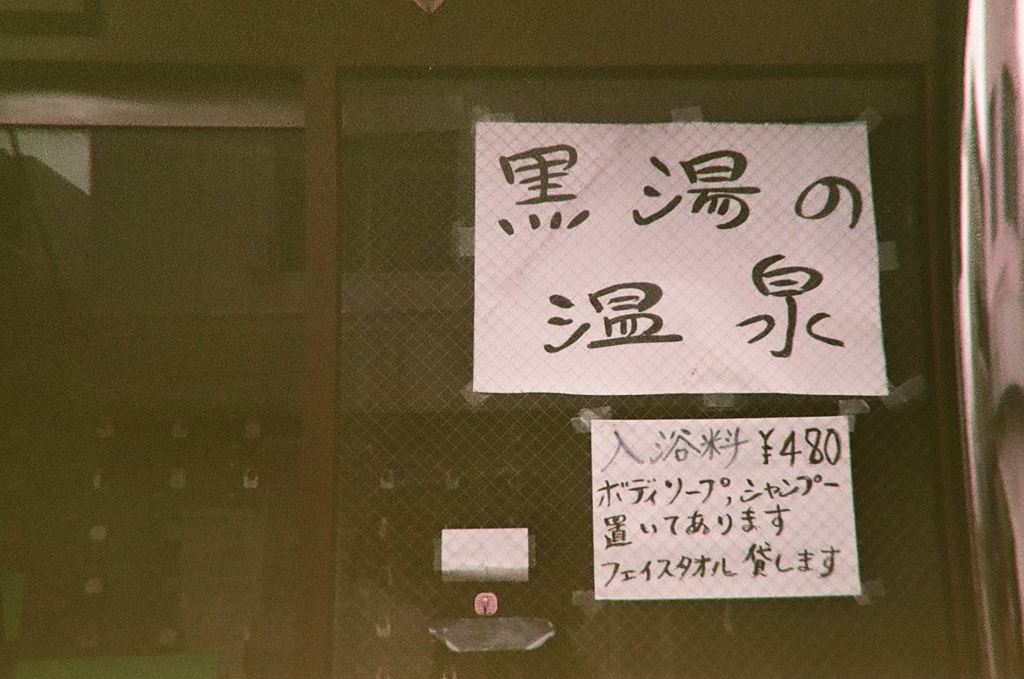 黒湯の
温泉
入浴料 ¥480
ボディソープ,シャンプー
置いてあります
フェイスタオル 貸します